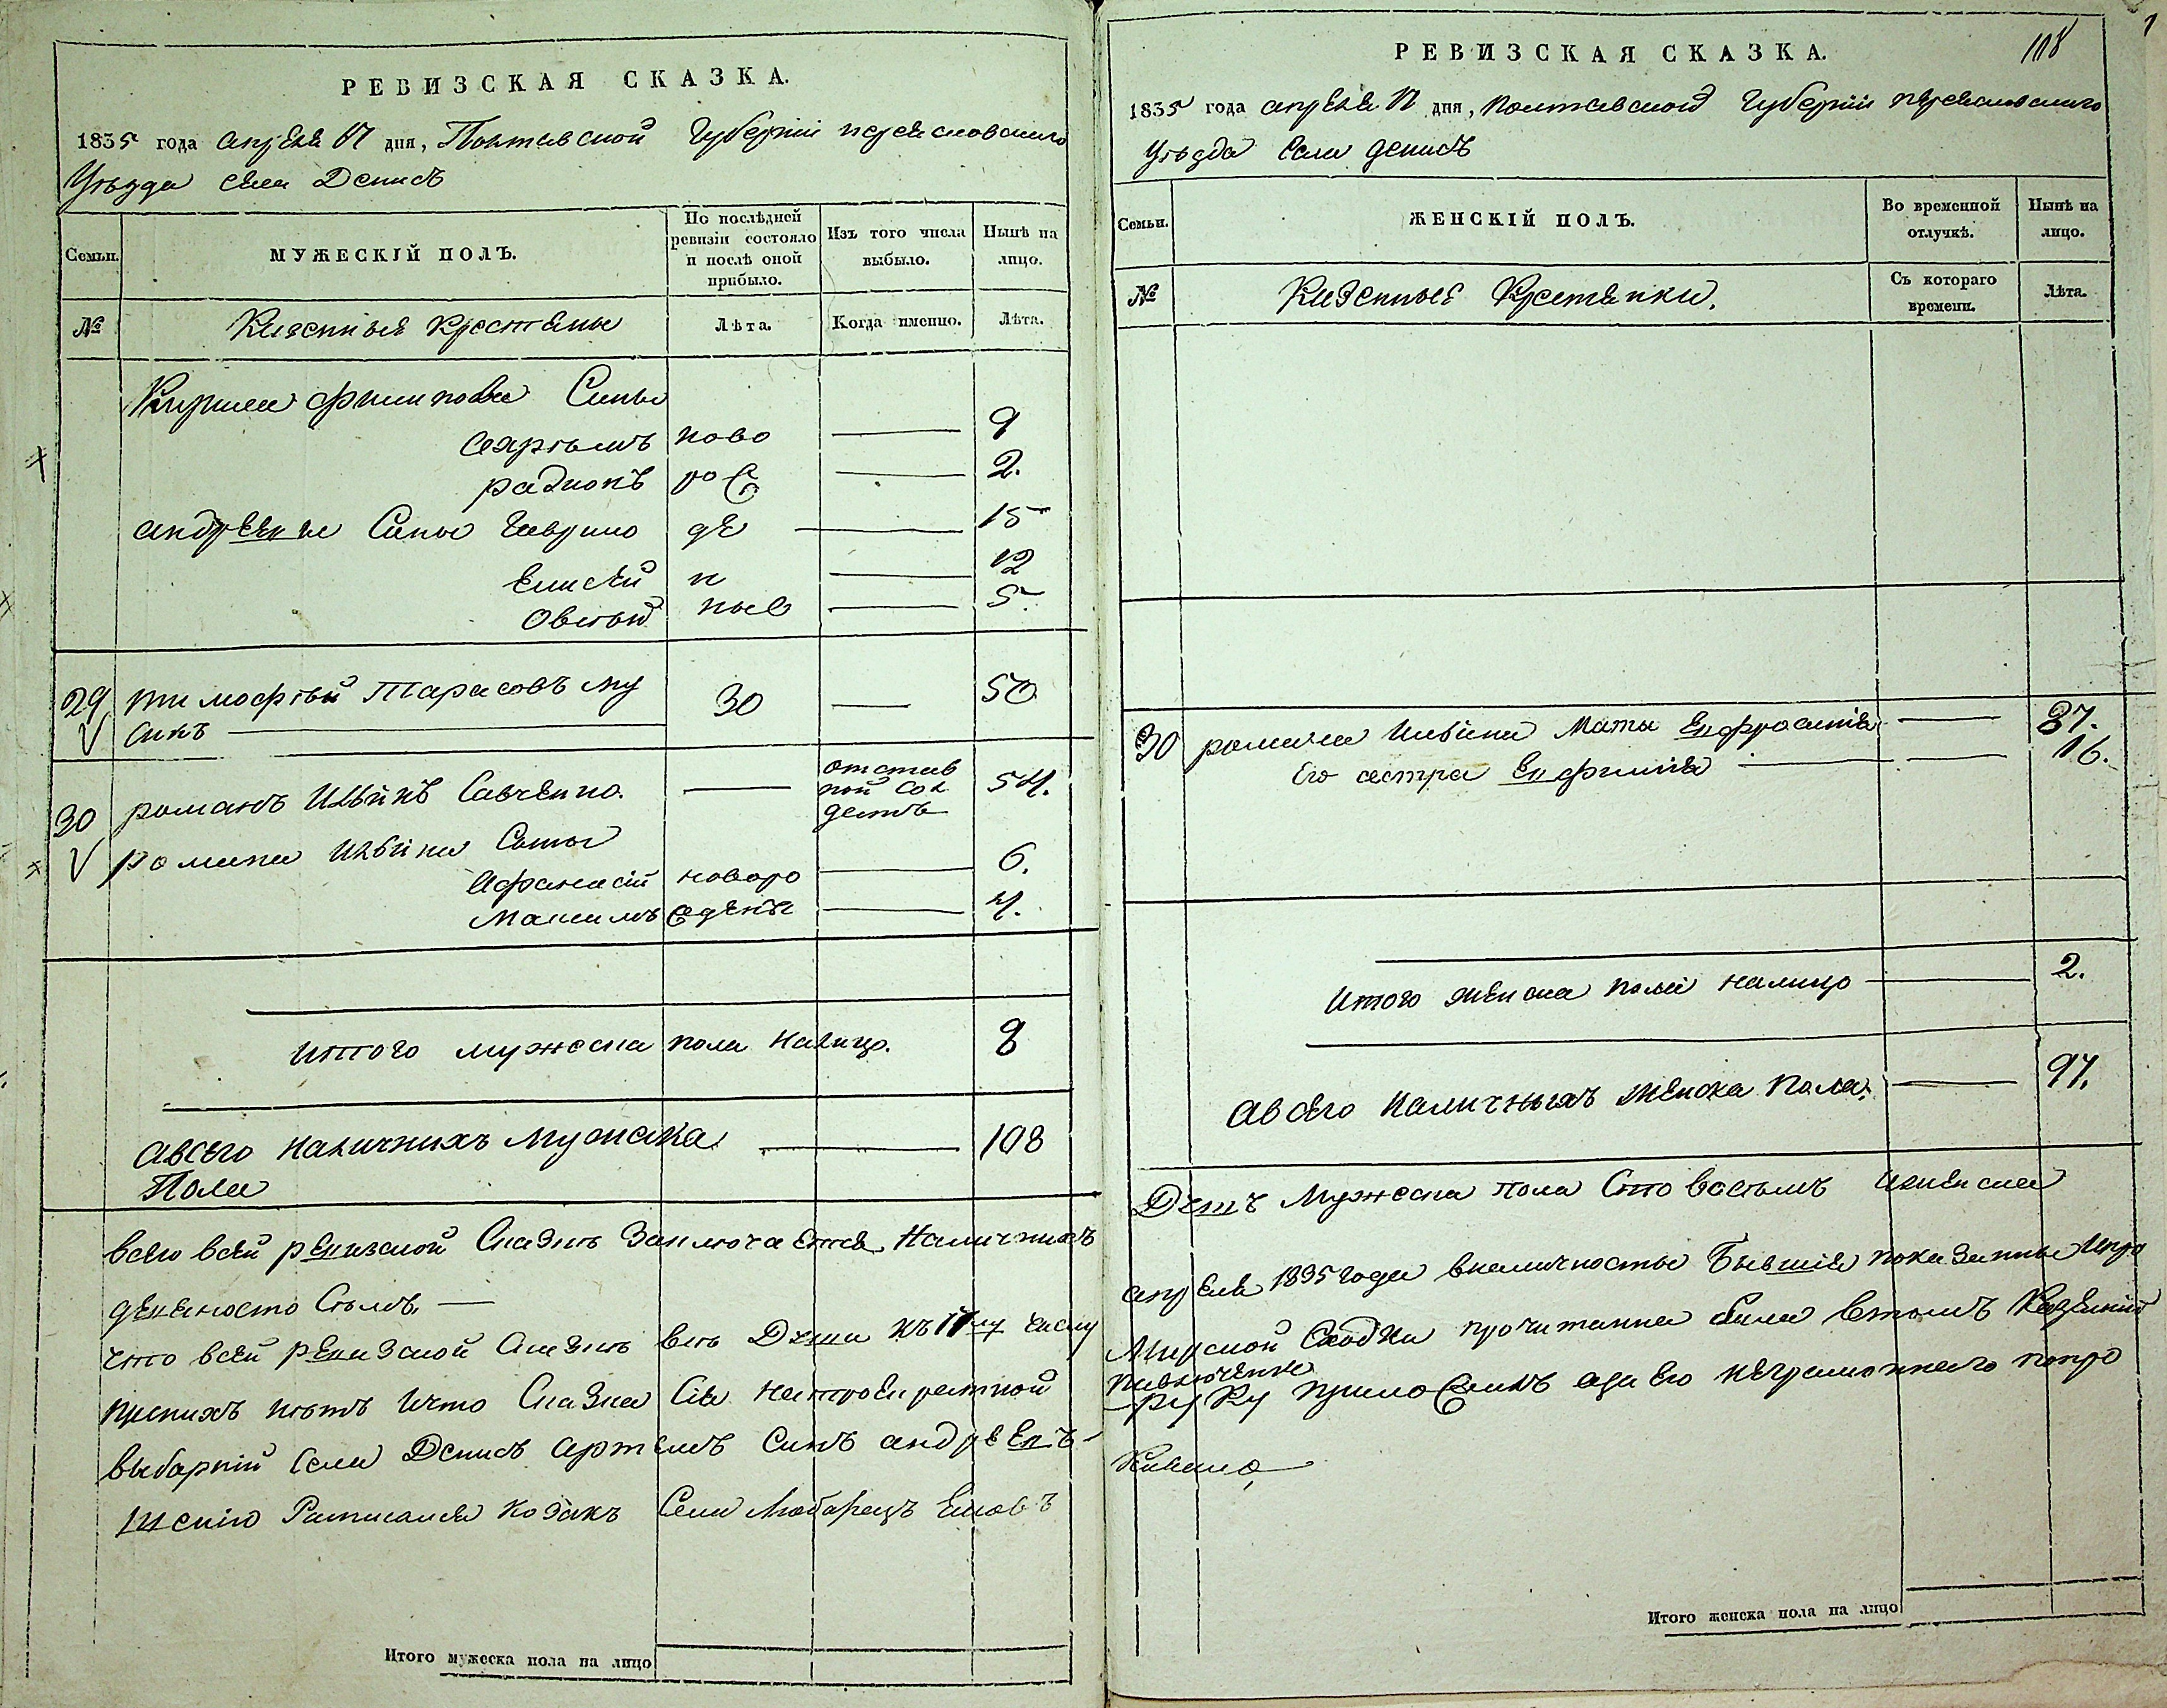 РЕВИЗСКАЯ СКАЗКА.
1835 года апреля 17 дня, Полтавской Губернии переяславскаго
Уѣзда села Денисъ
Семьи.
МУЖЕСКІЙ ПОЛЪ.
По послѣдней ревизіи состояло и послѣ оной прибыло.
Изъ того числа выбыло.
Нынѣ на лицо.
№
Казенные Крестяны
Лѣта.
Когда именно.
Лѣта.
Кирила филипова Сины
ново 9
радионъ рож 2.
андреевы Сины Гаврило де 15
Елисей н 12
Овсѣй ные 5.
29 тимофѣй Тарасовъ му 30 50
сикъ
30 романъ Ильинъ Савченко. отстав ной Сол датъ 54.
Романа Ильина Сыны
Афанасій новоро 6.
Максимъ жденъ 4.
итого мужеска пола налицо. 8
авсего наличнихъ мужска 108
Пола
всего всей ревизской Сказкѣ Заключается Наличнихъ
девеносто Семъ —
что всей ревизской Сказкѣ всѣ Души къ 17му числу
писнихъ нѣтъ Ичто Сказка Сія
выбарній села Денисъ артемъ синъ андреевъ
шенію Расписался козакъ Села Любарецъ
Итого мужеска пола на лицо
108
РЕВИЗСКАЯ СКАЗКА.
1835 года апреля 17 дня, полтавской Губерніи переяславскаго
Уѣзда Села денисъ
Семьи.
ЖЕНСКІЙ ПОЛЪ.
Во временной отлучкѣ.
Нынѣ на лицо.
№
Казенные Крестянки.
Съ котораго времени.
Лѣта.
30 романа Ильина Мати Евфросинія 87.
Его сестра Евфимія 16.
Итого женска пола налицо 2.
авсего наличныхъ женска пола. 97.
Душъ Мужеска пола Сто восемъ иженска
апреля 1835 года вналичносты Бывшія показанны Ипро
Мирской Сходки прочитанна была втомъ Казенній
Руку приложилъ аза его неграмотнаго попро
Итого женска пола на лицо